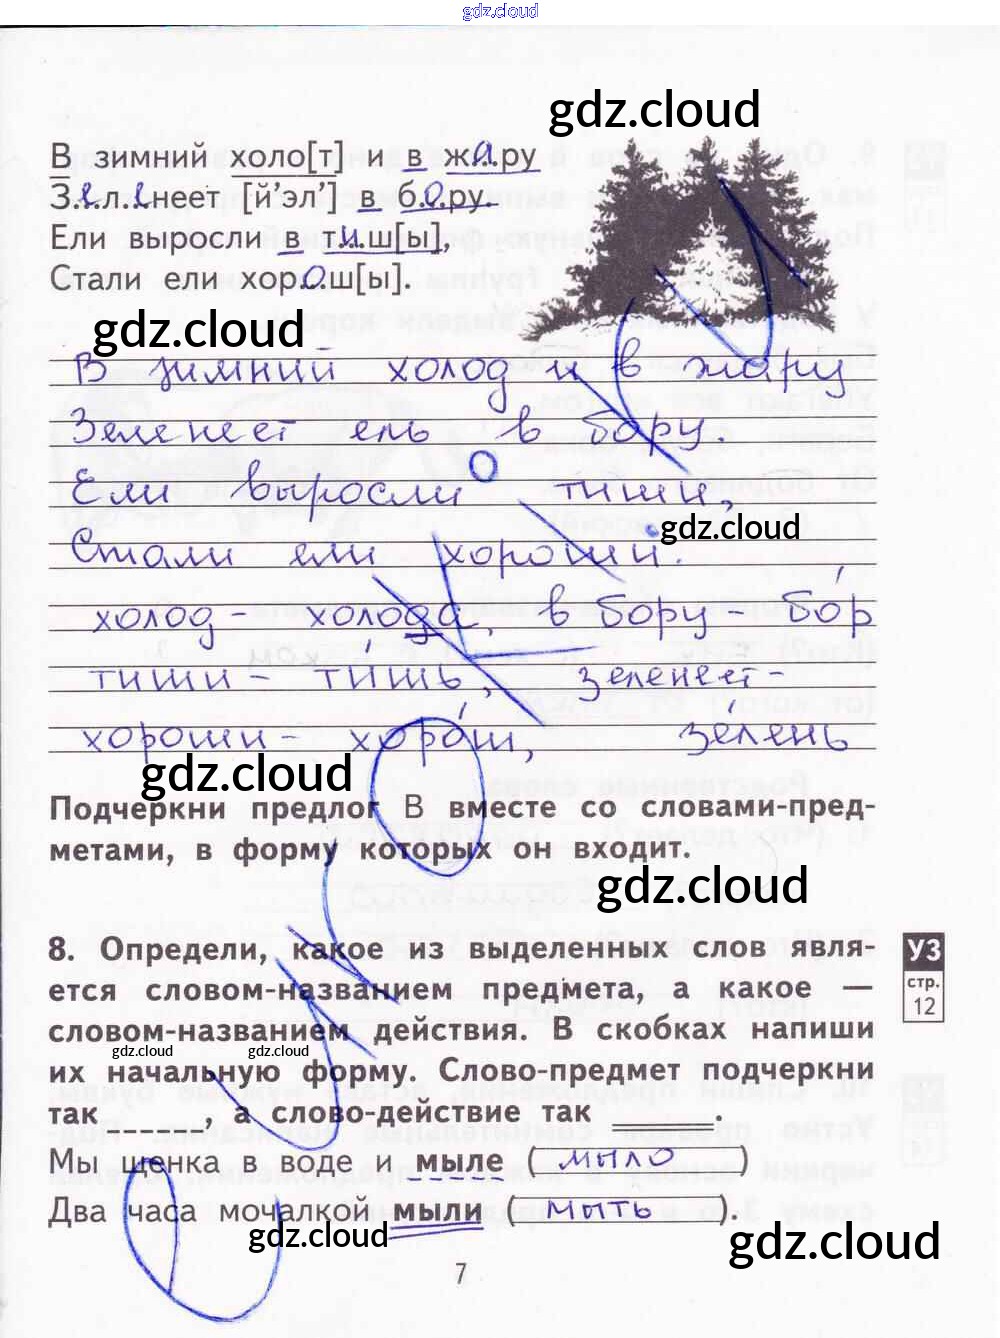 gdz.cloud
gdz.cloud
В зимний холо[т] и в жару
Зеленеет [й'эл'] в бору.
Ели выросли в тиш[ы],
Стали ели хорош[ы].
gdz.cloud
В зимний холод и в жару
Зеленеет ель в бору.
Ели выросли тиши,
gdz.cloud
Стали ели хороши.
холод - холода, в бору - бор
тиши - тишь, зеленеет -
хороши - хорош, зелень
gdz.cloud
Подчеркни предлог В вместе со словами-пред-
метами, в форму которых он входит.
gdz.cloud
8. Определи, какое из выделенных слов явля-
ется словом-названием предмета, а какое —
словом-названием действия. В скобках напиши
их начальную форму. Слово-предмет подчеркни
так , а слово-действие так .
УЗ
стр.
12
gdz.cloud gdz.cloud
Мы щенка в воде и мыле ( мыло )
Два часа мочалкой мыли ( мыть ).
gdz.cloud gdz.cloud
7